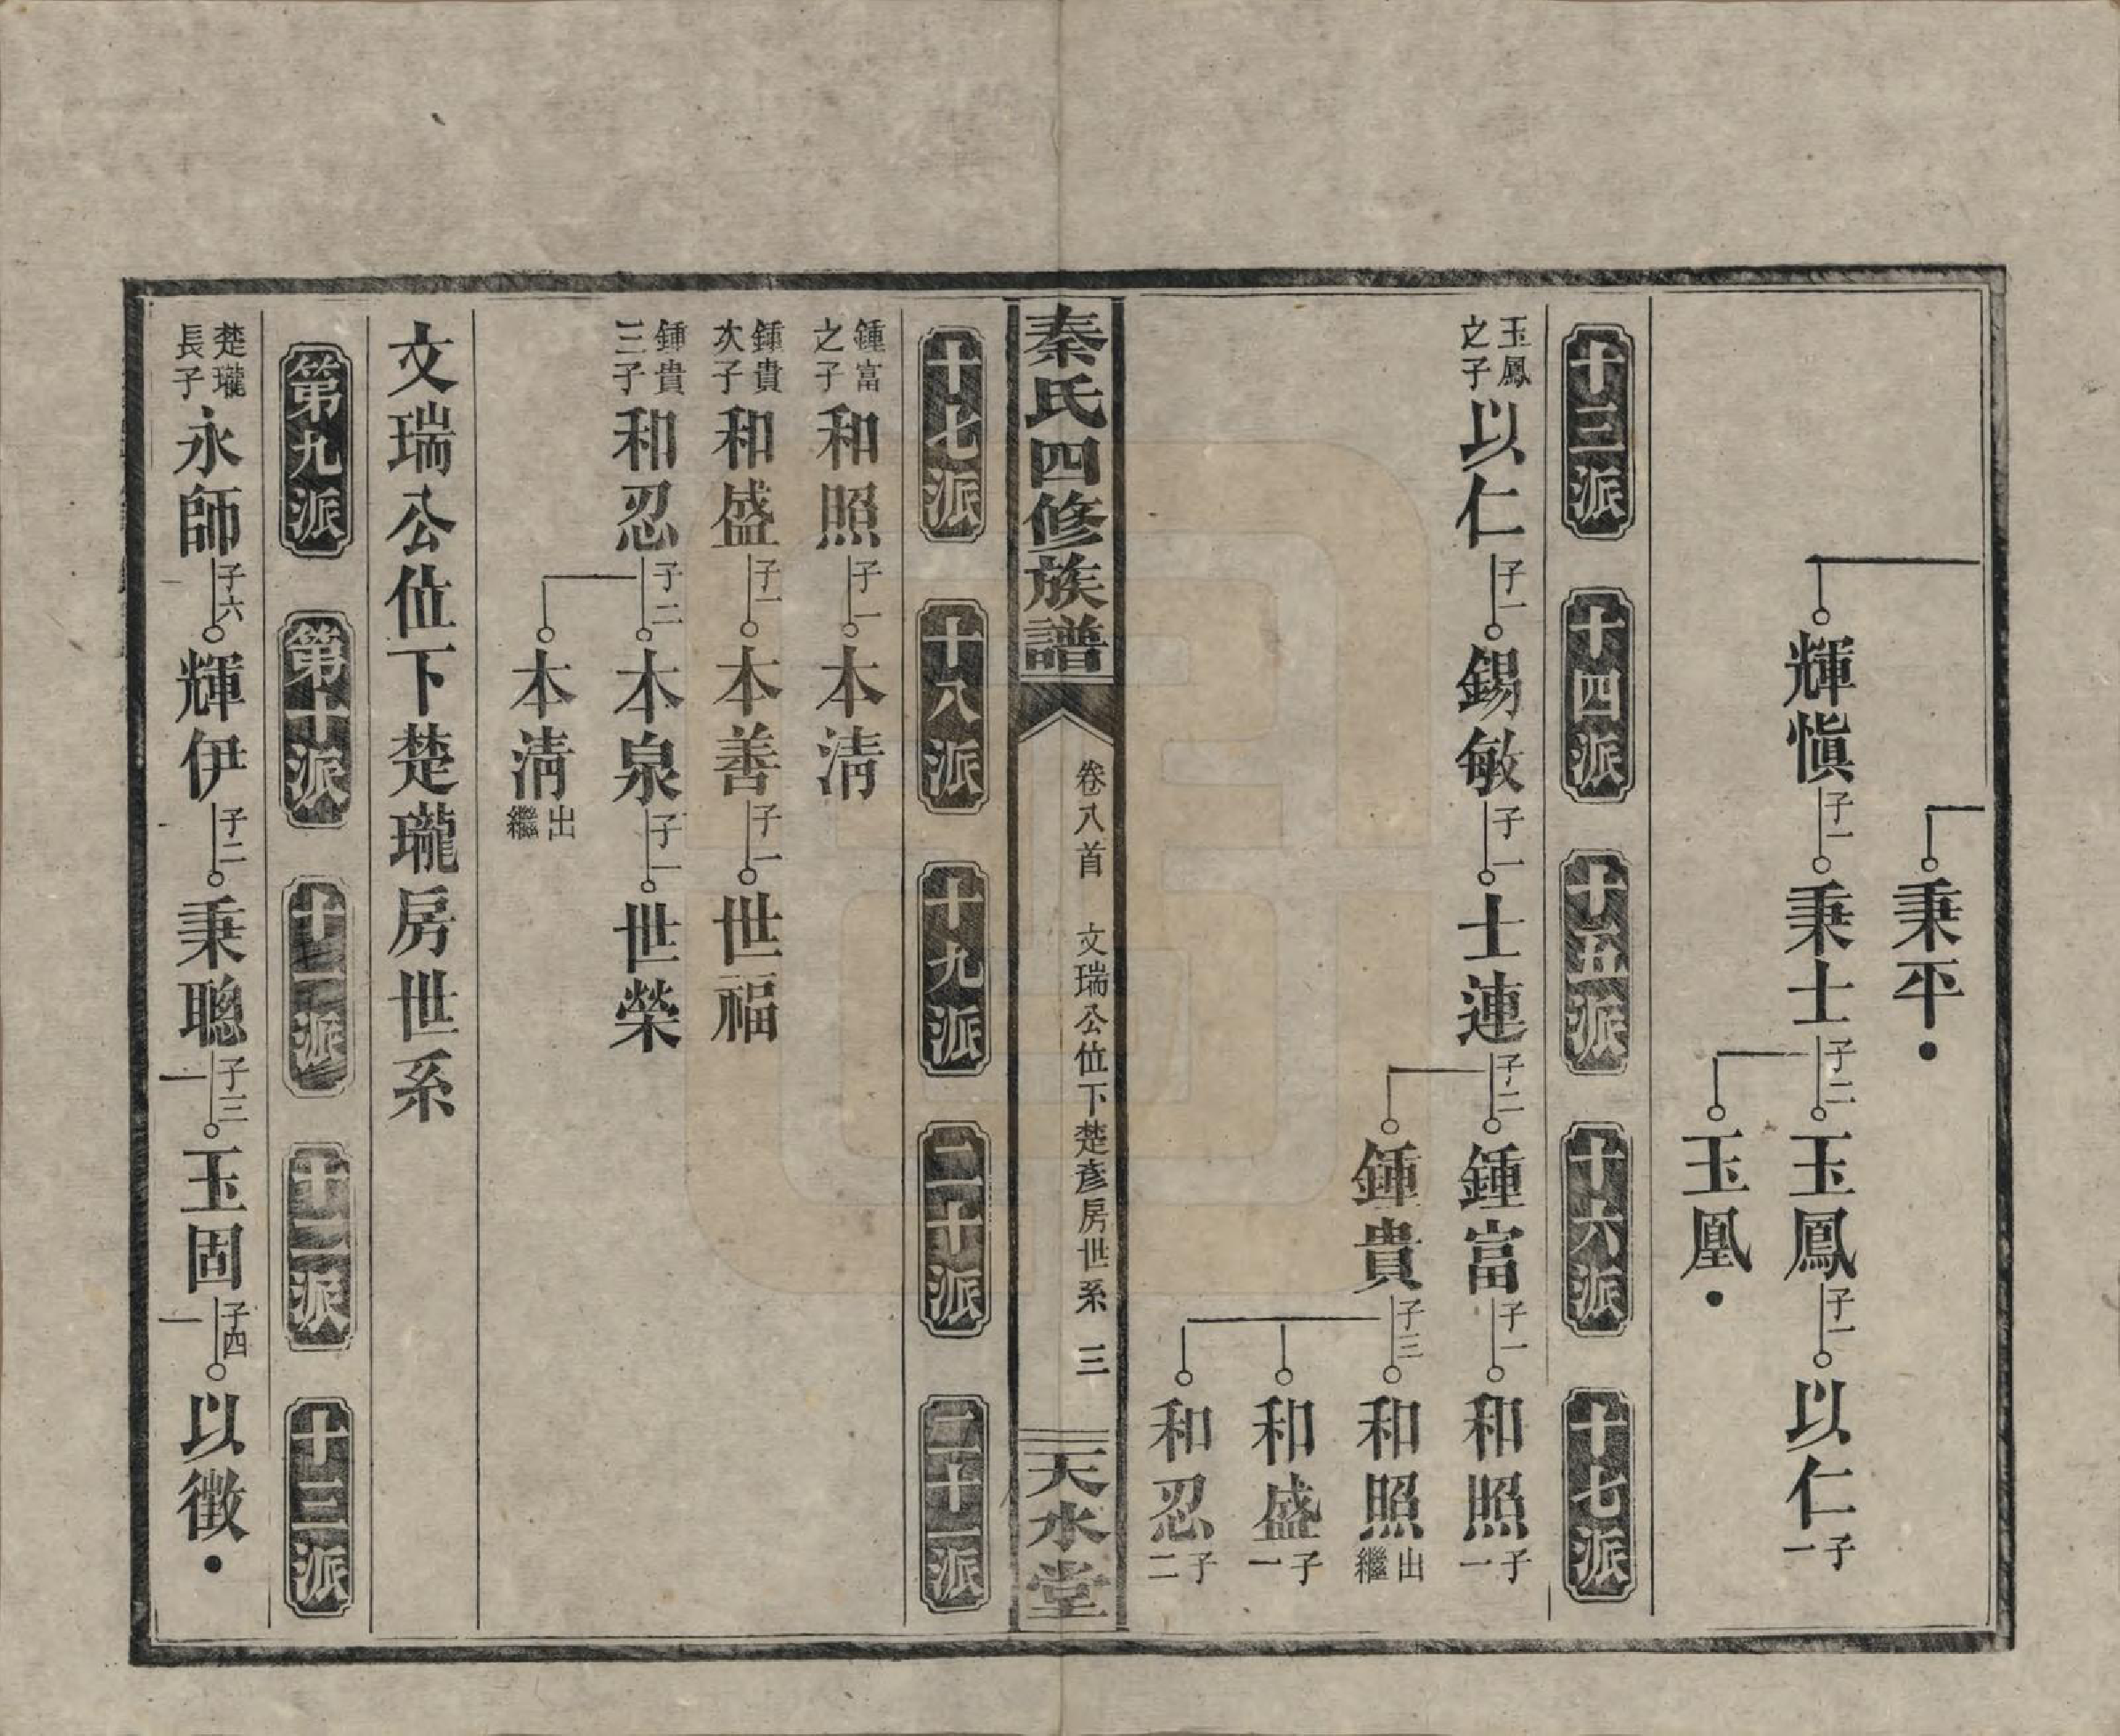 秉平
輝愼子一秉士子二玉鳳子一以仁子一
玉凰
十三派 十四派 十五派 十六派 十七派
玉鳳之子以仁子一錫敏子一士連子二鍾富子一和照子一
鍾貴子三和照出繼
和盛子一
和忍子二
秦氏四修族譜 卷八首 文瑞公位下楚彥房世系 三 天水堂
十七派 十八派 十九派 二十派 二十一派
鍾富之子和照子一本淸
鍾貴次子和盛子一本善子一世福
鍾貴三子和忍子二本泉子一世榮
本淸出繼
文瑞公位下楚瓏房世系
第九派 第十派 十一派 十二派 十三派
楚瓏長子永師子六輝伊子二秉聰子三玉固子四以徵